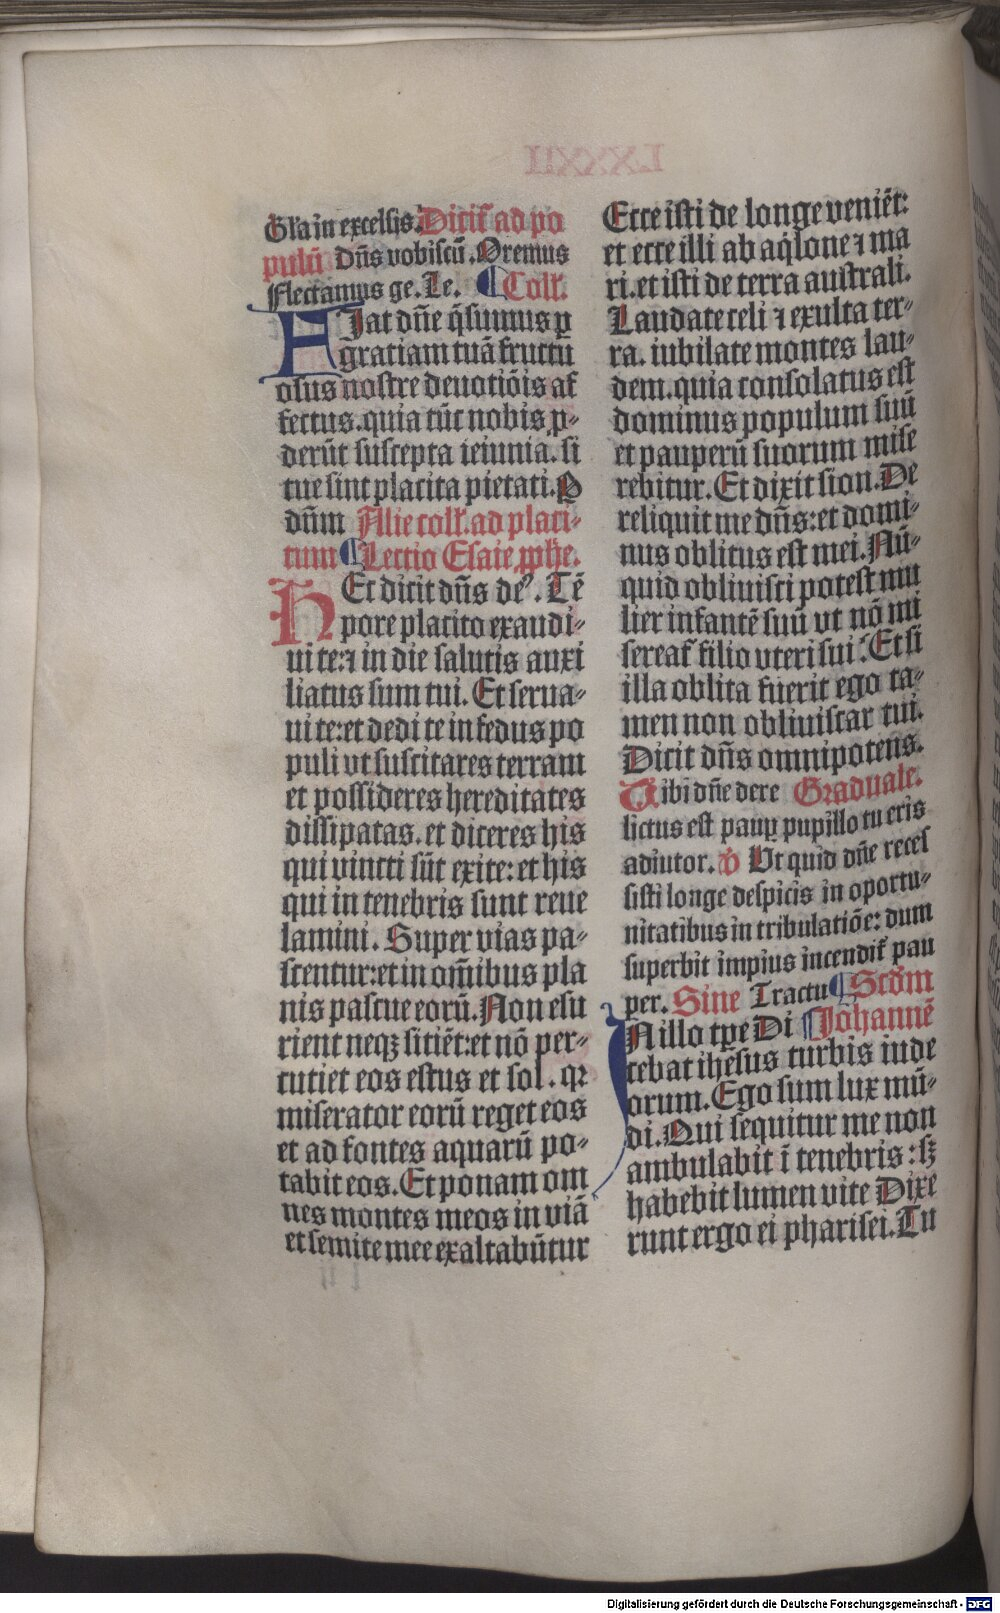 LXXXII
Gl'a in excelsis. Dicit̃ ad po
pulũ Dñs vobiscũ. Oremus
Flectamus ge. Le. ¶ Coll'.
FIat dñe q̃sumus ꝑ
gratiam tuã fructu
osus nostre deuotiõis af
fectus. quia tũt nobis ꝓ-
derũt suscepta ieiunia. si
tue sint placita pietati. P
dñm Alie coll'. ad placi-
tum ¶ Lectio Esaie ꝓphe.
HEc dicit dñs deꝰ. Tẽ
pore placito exaudi-
ui te: ⁊ in die salutis auxi
liatus sum tui. Et serua-
ui te: et dedi te in fedus po
puli vt suscitares terram
et possideres hereditates
dissipatas. et diceres his
qui vincti sũt exite: et his
qui in tenebris sunt reue
lamini. Super vias pa-
scentur: et in om̃ibus pla
nis pascue eorũ. Non esu
rient neqꝫ sitiẽt: et nõ per-
cutiet eos estus et sol. qꝛ
miserator eorũ reget eos
et ad fontes aquarũ po-
tabit eos. Et ponam om
nes montes meos in viã
et semite mee exaltabũtur
Ecce isti de longe veniẽt:
et ecce illi ab aq̃lone ⁊ ma
ri. et isti de terra australi.
Laudate celi ⁊ exulta ter-
ra. iubilate montes lau-
dem. quia consolatus est
dominus populum suũ
et pauperũ suorum mise
rebitur. Et dixit sion. De
reliquit me dñs: et domi-
nus oblitus est mei. Nũ-
quid obliuisci potest mu
lier infantẽ suũ vt nõ mi
sereat̃ filio vteri sui: Et si
illa oblita fuerit ego ta-
men non obliuiscar tui.
Dicit dñs omnipotens.
Tibi dñe dere Graduale.
lictus est paupꝑ pupillo tu eris
adiutor. v̓ Ut quid dñe reces
sisti longe despicis in oportu-
nitatibus in tribulatiõe: dum
superbit impius incendit̃ pau
per. Sine Tractu ¶ Scd̃m
IN illo tp̃e Di ¶ Johannẽ
cebat ihesus turbis iude
orum. Ego sum lux mũ-
di. Qui sequitur me non
ambulabit ĩ tenebris: sꝫ
habebit lumen vite Dixe
runt ergo ei pharisei. Tu
Digitalisierung gefördert durch die Deutsche Forschungsgemeinschaft - DFG